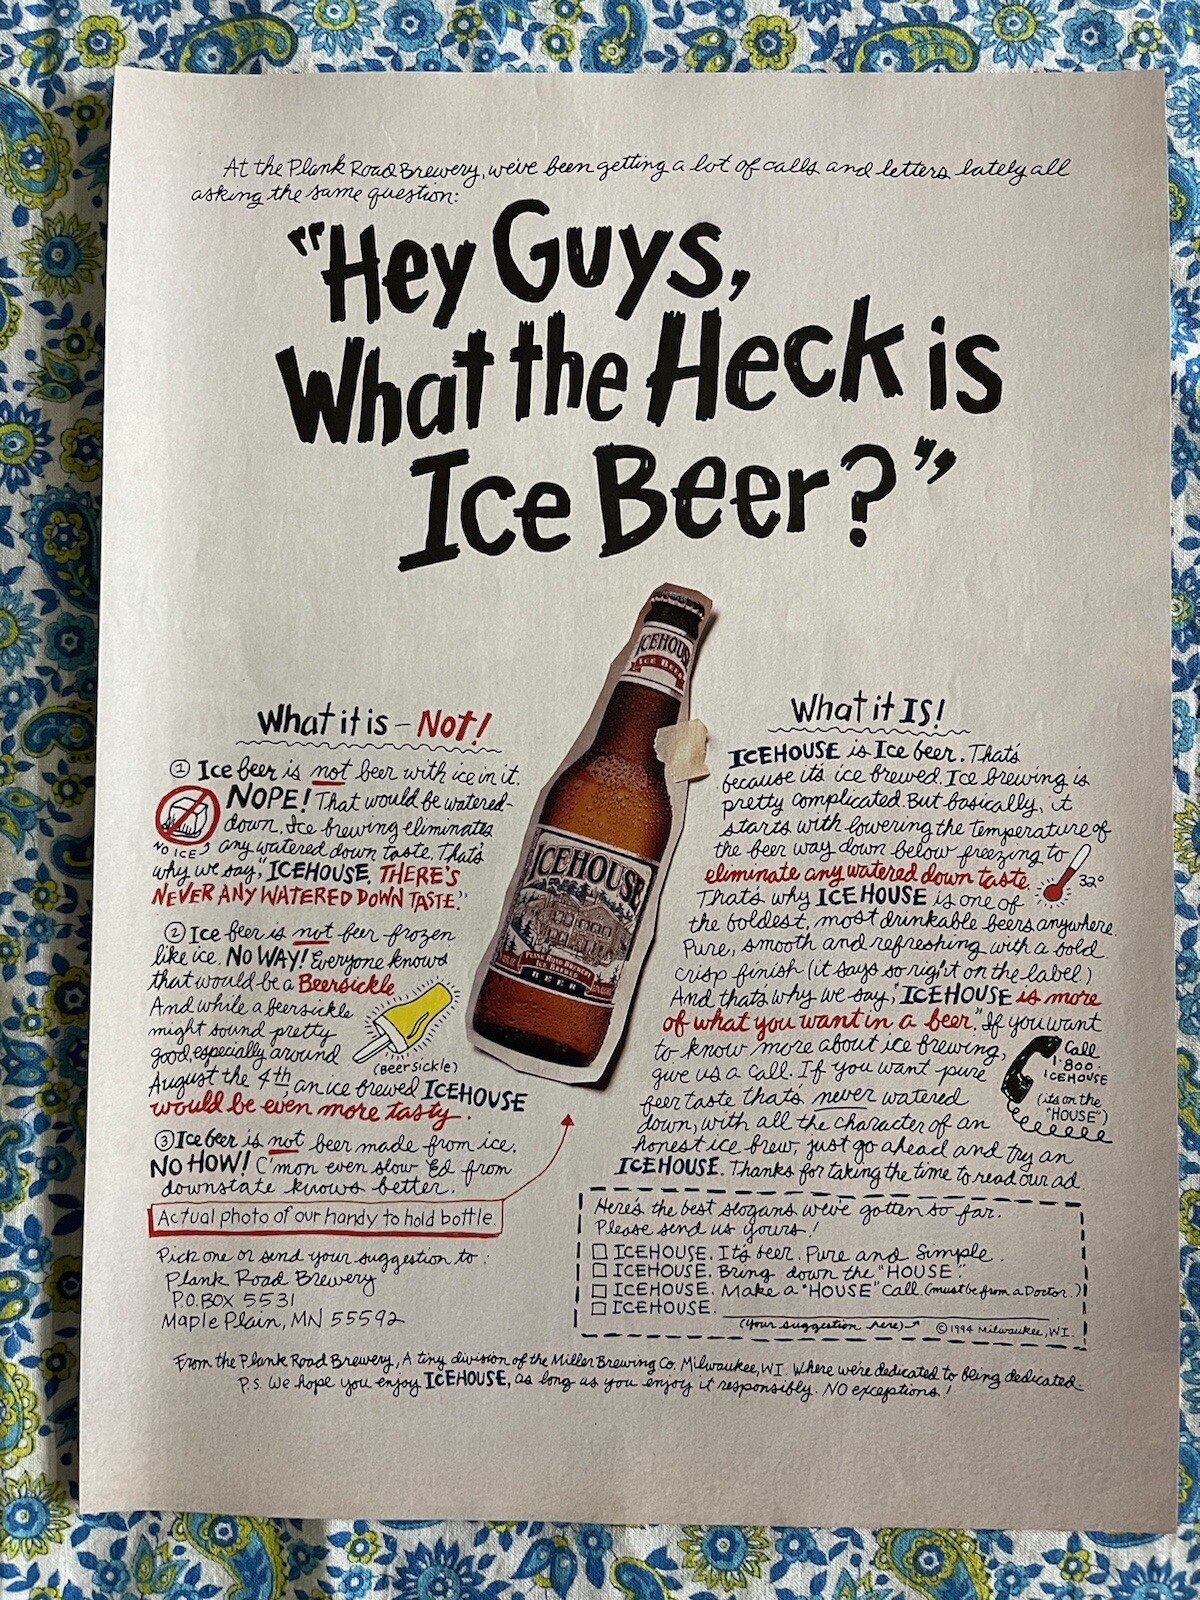 At the Plank Road Brewery, we've been getting a lot of calls and letters lately all
asking the same question:
"Hey Guys,
What the Heck is
Ice Beer?"
ICEHOUSE
ICE BEER
ICEHOUSE
PLANK ROAD BREWERY
ICE BREWED
BEER
What it is - Not!
① Ice beer is not beer with ice in it.
NOPE! That would be watered-
down. Ice brewing eliminates
NO ICE
any watered down taste. That's
why we say, "ICEHOUSE. THERE'S
NEVER ANY WATERED DOWN TASTE."
② Ice beer is not beer frozen
like ice. NO WAY! Everyone knows
that would be a Beersickle
And while a beersickle
might sound pretty
good, especially around
(Beersickle)
August the 4th, an ice brewed ICEHOUSE
would be even more tasty.
③ Ice beer is not beer made from ice.
NO HOW! C'mon even slow Ed from
downstate knows better.
Actual photo of our handy to hold bottle.
Pick one or send your suggestion to:
Plank Road Brewery
P.O. BOX 5531
Maple Plain, MN 55592
What it IS!
ICEHOUSE is Ice beer. That's
because it's ice brewed. Ice brewing is
pretty complicated. But basically, it
starts with lowering the temperature of
the beer way down below freezing to
eliminate any watered down taste.
32°
That's why ICEHOUSE is one of
the boldest, most drinkable beers anywhere.
Pure, smooth and refreshing with a bold
crisp finish (it says so right on the label.)
And that's why we say, "ICEHOUSE is more
of what you want in a beer." If you want
to know more about ice brewing,
give us a call. If you want pure
beer taste that's never watered
down, with all the character of an
honest ice brew, just go ahead and try an
ICEHOUSE. Thanks for taking the time to read our ad.
Call
1-800-
ICEHOUSE
(it's on the
"HOUSE")
Here's the best slogans we've gotten so far.
Please send us yours!
☐ ICEHOUSE. It's beer. Pure and Simple.
☐ ICEHOUSE. Bring down the "HOUSE".
☐ ICEHOUSE. Make a "HOUSE" Call. (must be from a Doctor.)
☐ ICEHOUSE.
(your suggestion here) © 1994 Milwaukee, WI.
From the Plank Road Brewery, A tiny division of the Miller Brewing Co. Milwaukee, WI. Where we're dedicated to being dedicated.
P.S. We hope you enjoy ICEHOUSE, as long as you enjoy it responsibly. NO exceptions!